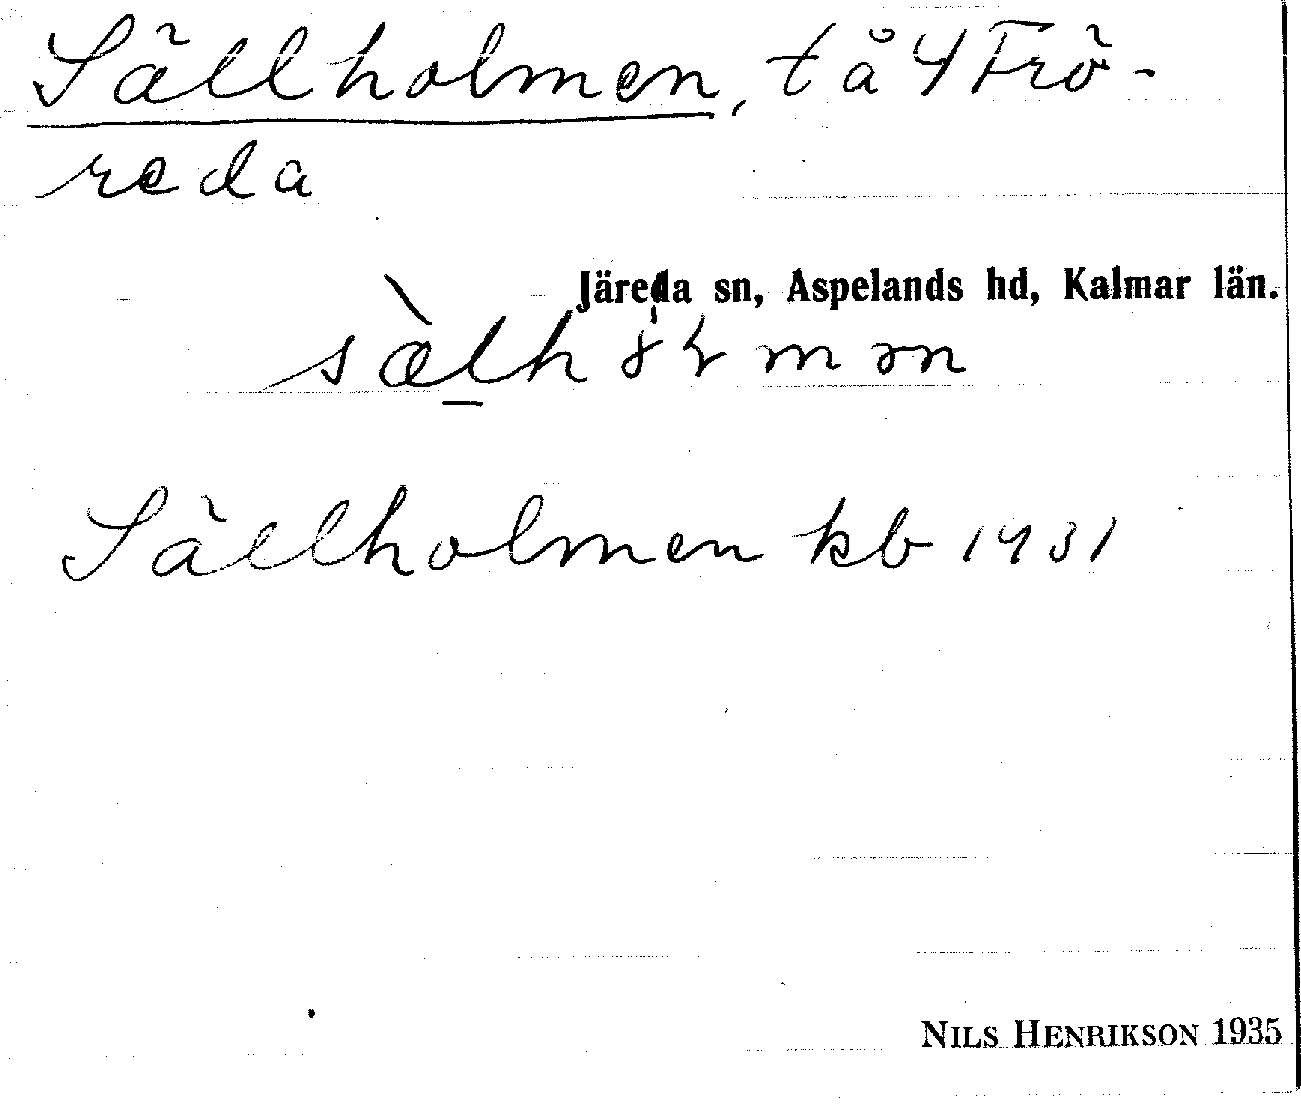 Sällholmen, t å 4 Frö-
reda
Järeda sn, Aspelands hd, Kalmar län.
Sällholmen kb 1931
NILS HENRIKSON 1935